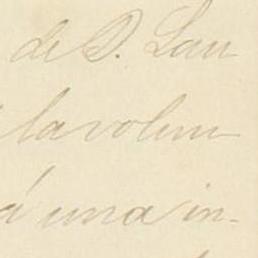 de D. Lau
la volun
á una in-